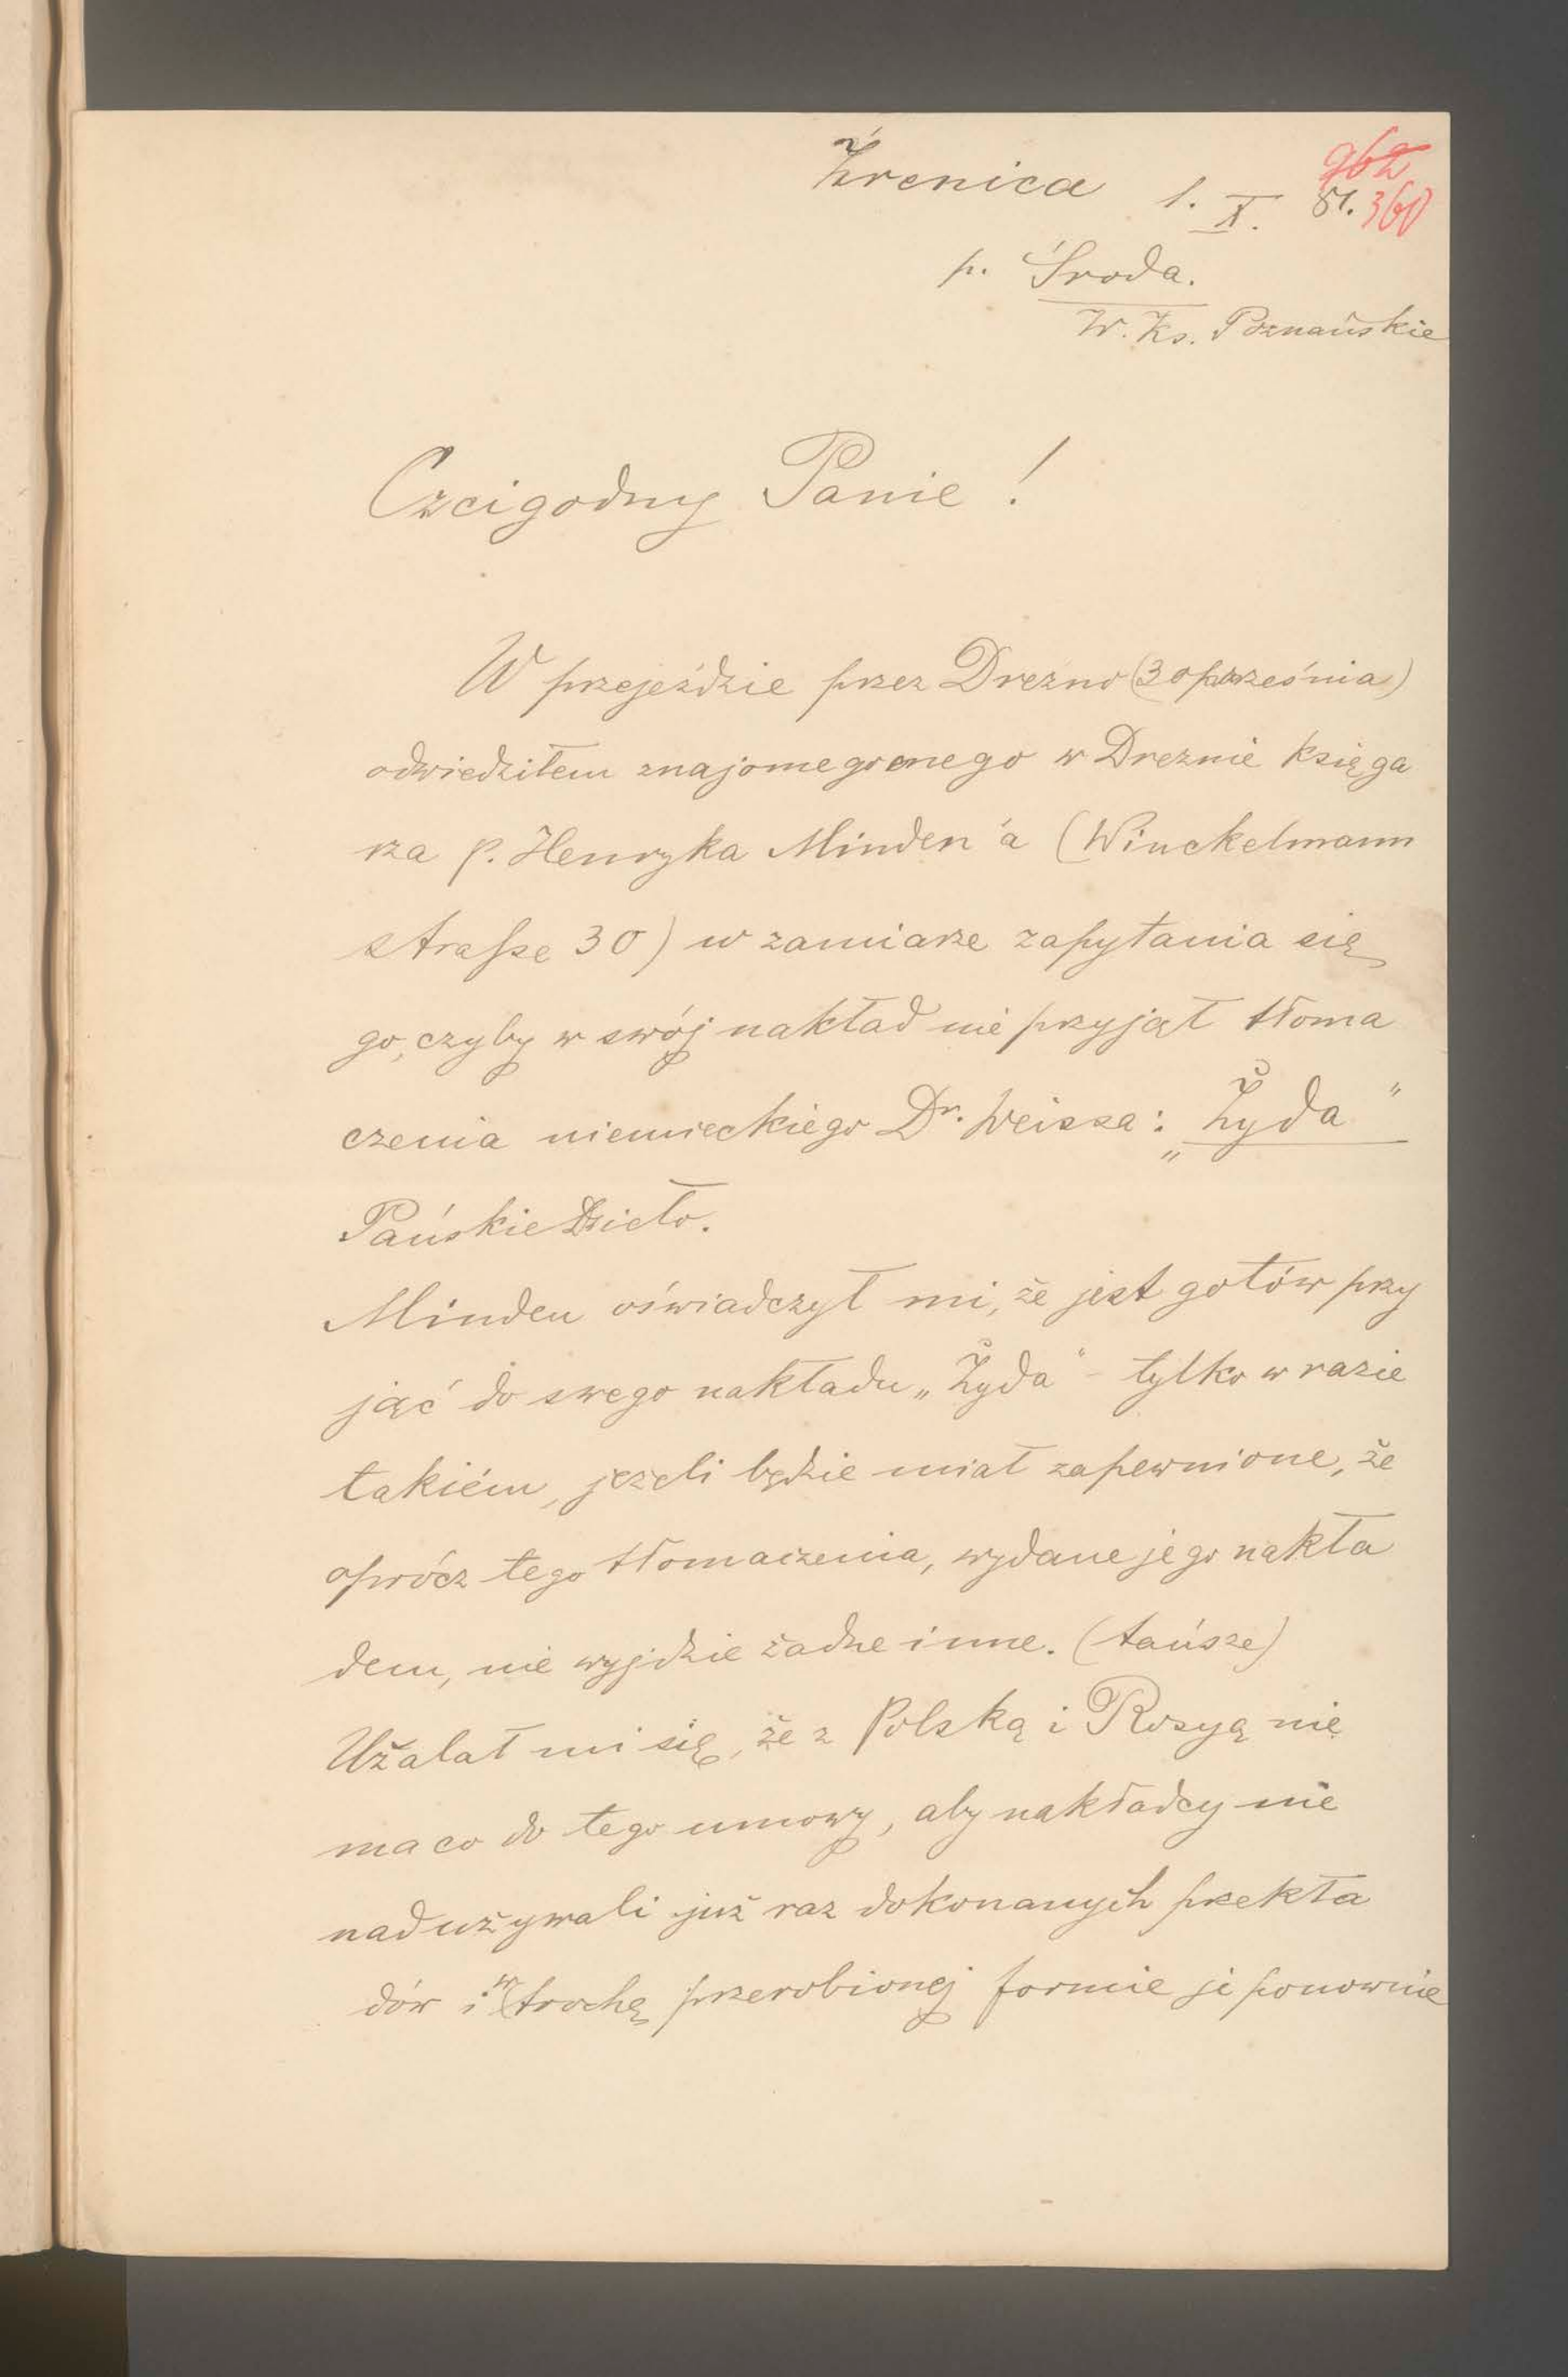 Źrenica 1. X. 81.
962
360
p. Środa.
W. Ks. Poznańskie
Czcigodny Panie!
W przejeździe przez Drezno (30 września)
odwiedziłem znajomego mego w Dreznie księga
rza p. Henryka Minden'a (Winckelmann
strasse 30) w zamiarze zapytania się
go, czyby w swój nakład nie przyjął tłoma
czenia niemieckiego Dr. Weissa: „Żyda"
Pańskie Dzieło.
Minden oświadczył mi, że jest gotów przy
jąć do swego nakładu „Żyda" - tylko w razie
takiém, jeżeli będzie miał zapewnione, że
oprócz tego tłomaczenia, wydane jego nakła
dem, nie wyjdzie żadne inne. (tańsze)
Użalał mi się, że z Polską i Rosyą nie
ma co do tego umowy, aby nakładcy nie
nadużywali już raz dokonanych przekła
dów i w trochę przerobionej formie je ponownie